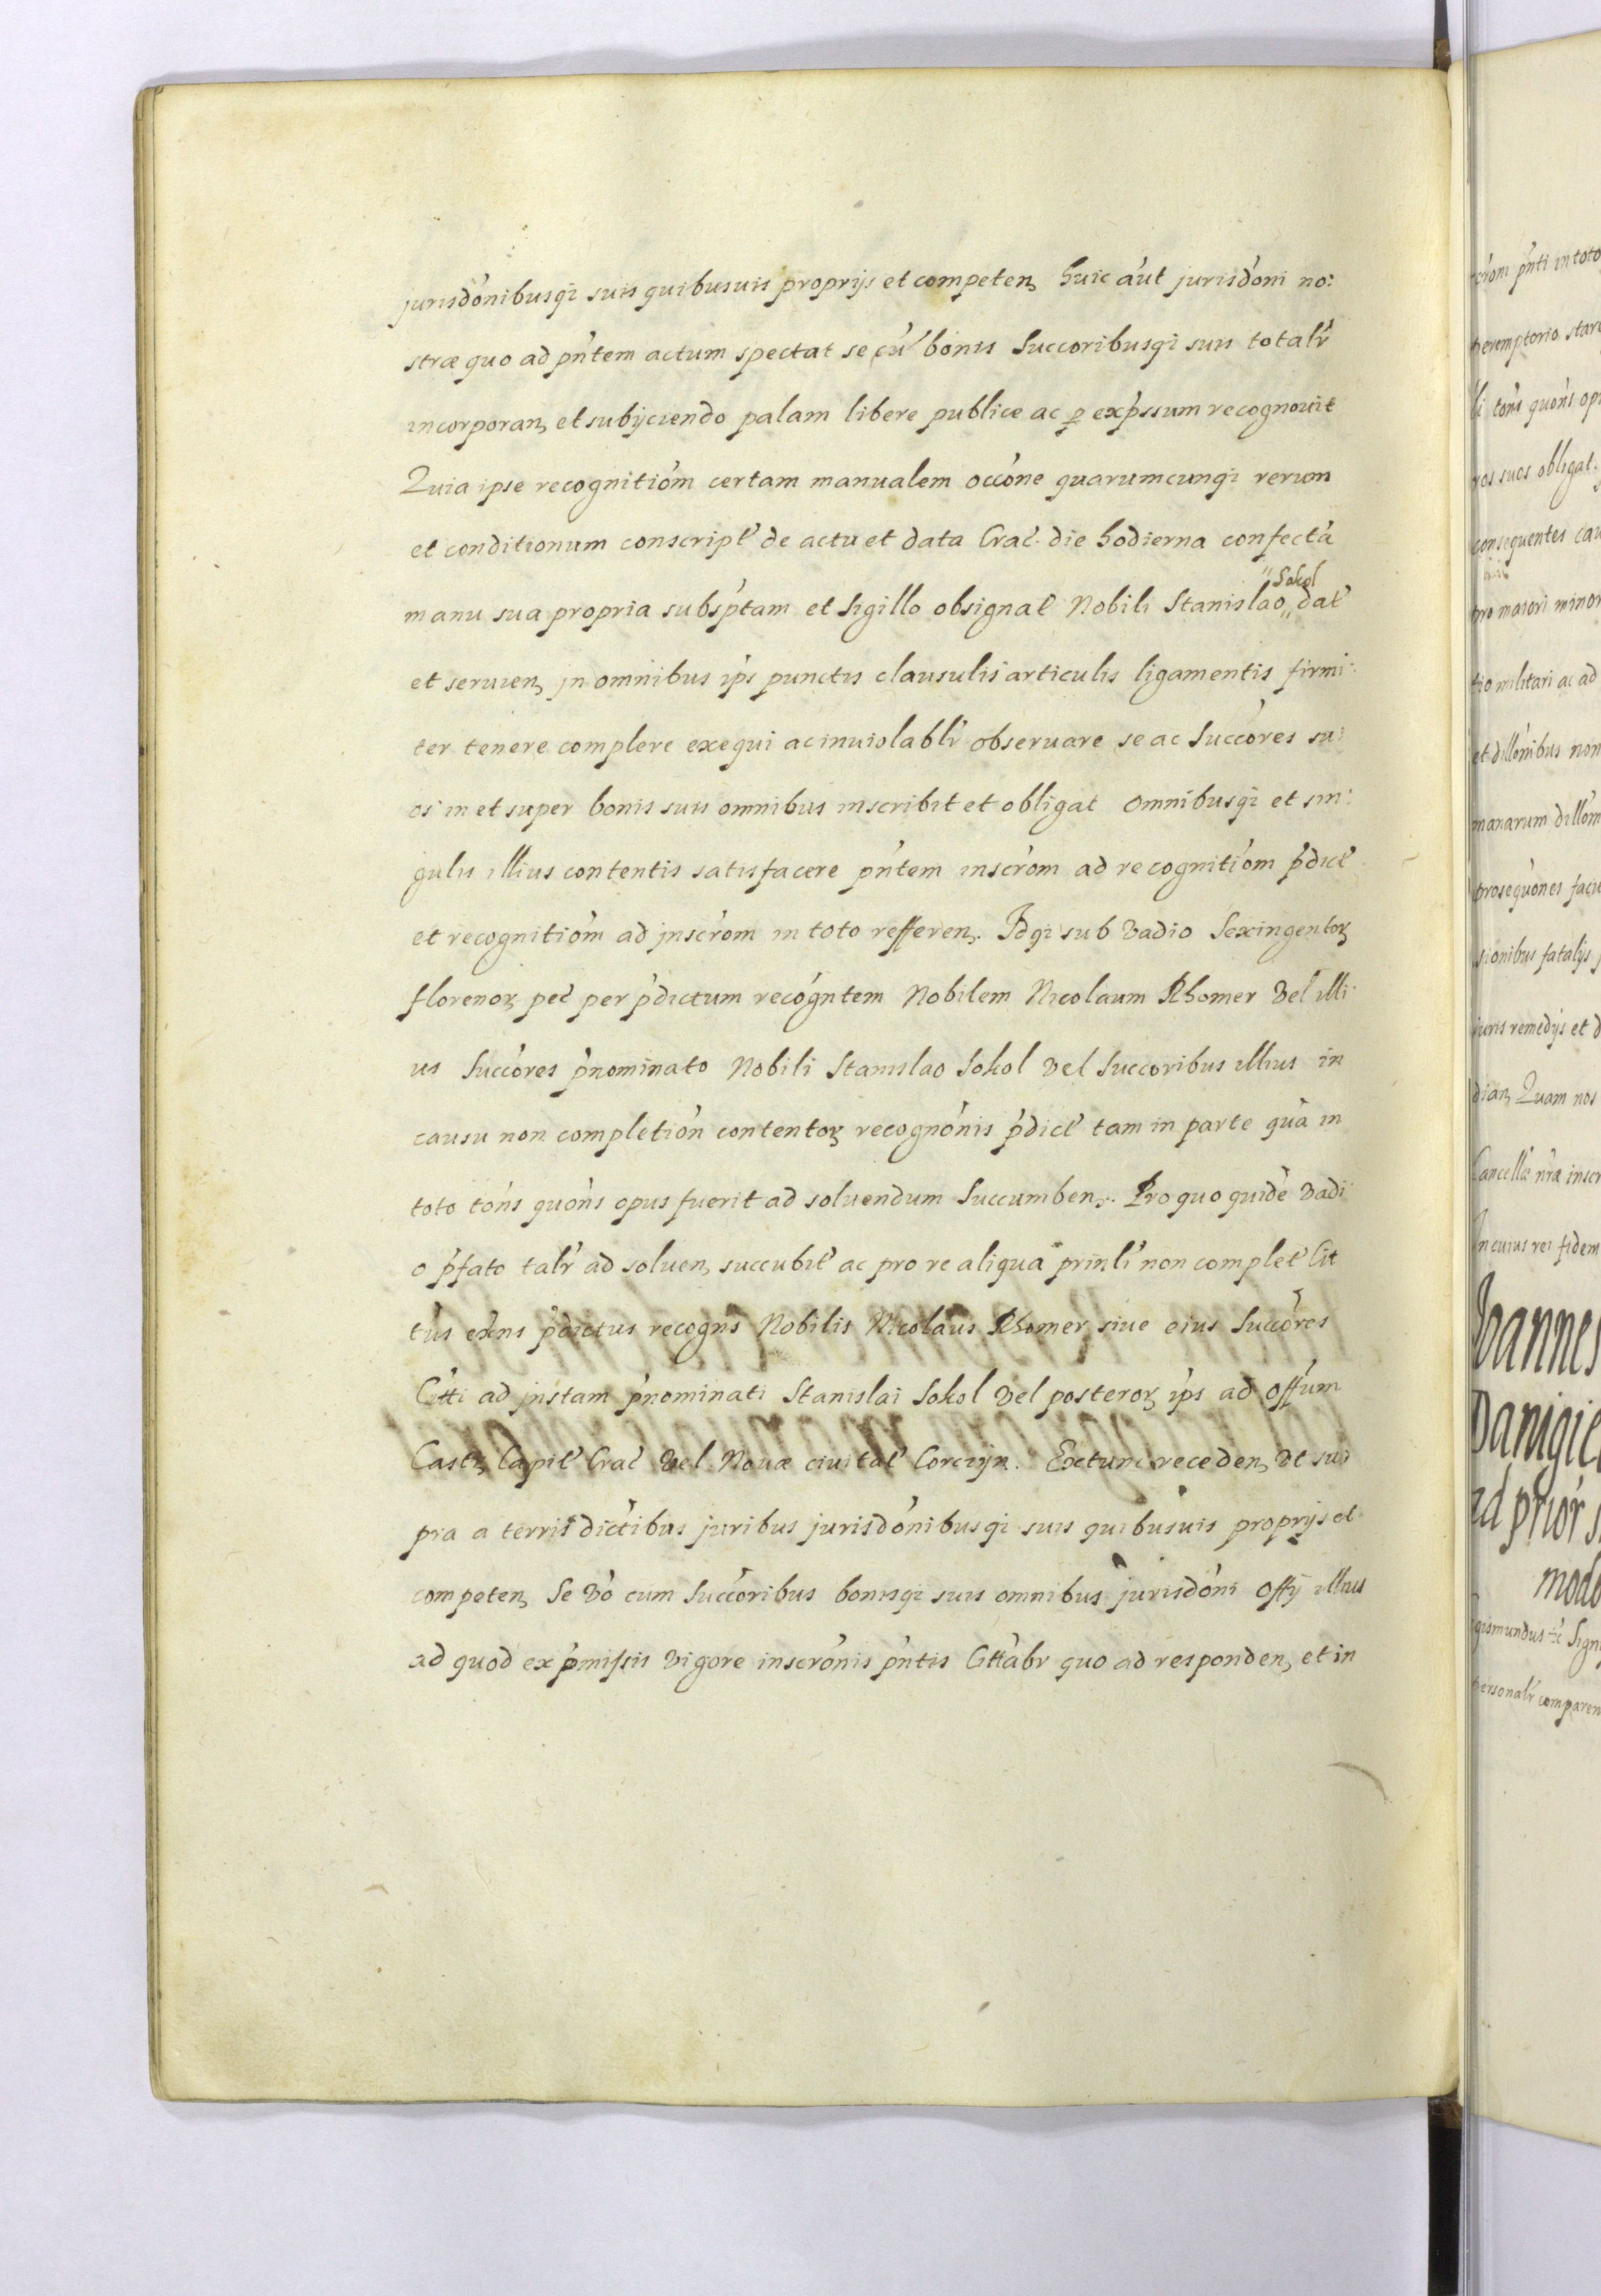 jurisdo'nibusq; suis quibusuis proprijs et competen, huic au't jurisdo'ni no:
stræ quo ad pn'tem actum spectat se cu' bonis Succoribusq; suis totalr'
incorporan, et subijciendo palam libere publice ac p exp'ssum recognouit
Quia ipse recognitio'm certam manualem occo'ne quarumcunq; rerum
et conditionum conscript' de actu et data Crac'. die hodierna confecta'
manu sua propria subsp'tam et Sigillo obsignat' Nobili Stanislao "Sokol" dat'
et seruien, in omnibus ip's punctis clausulis articulis ligamentis firmi:
ter tenere complere exequi ac inuiolablr' obseruare se ac Succo'res su:
os in et super bonis suis omnibus inscribit et obligat Omnibusq; et sin:
gulis illius contentis satisfacere pn'tem inscro'm ad recognitio'm p'dict'
et recognitio'm ad inscro'm in toto refferen,. Idq; sub Vadio Sexingentor,
florenor, pec' per p'dictum reco'gntem Nobilem Nicolaum Rhomer Vel illi:
us Succo'res p'nominato Nobili Stanislao Sokol Vel Succoribus illius in
causu non completio'n contentor, recogno'nis p'dict' tam in parte qua' in
toto to'ns quo'ns opus fuerit ad soluendum Succumben,. Pro quo quide' Vadi
o p'fato talr' ad soluen, succubit' ac pro re aliqua prin'li non complet' Cit
tu's ex'ns p'dictus recogn's Nobilis Nicolaus Rhomer siue eius Succo'res
Ci'tti ad instam p'nominati Stanislai Sokol Vel posteror, ip's ad Off'um
Castr, Capit' Crac' Vel Nouæ ciuitat' Corczyn. Extunc receden, Vt su:
pra a terris dict'ibus juribus jurisdo'nibusq; suis quibusuis proprijs et
competen, Se Vo' cum Succo'ribus bonisq; suis omnibus jurisdo'ni Offij illius
ad quod ex p'missis Vigore inscro'nis pn'tis Citta'br quo ad responden, et in